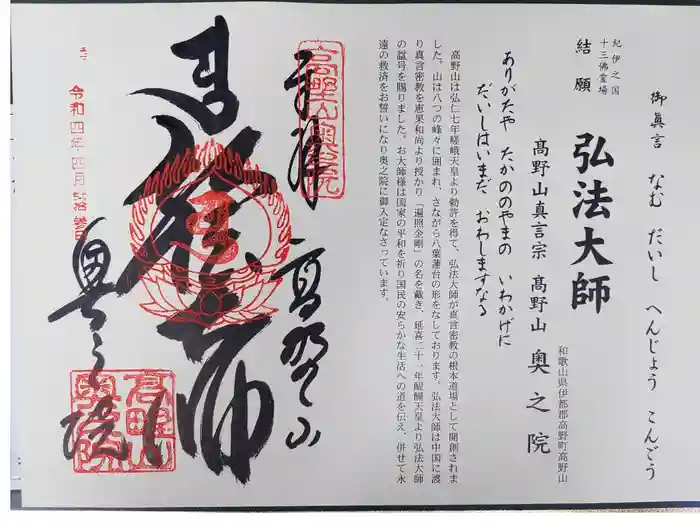 御眞言 なむ だいし へんじょう こんごう
紀伊之国
十三佛霊場
結願
弘法大師
和歌山県伊都郡高野町高野山
高野山真言宗 高野山 奥之院
ありがたや たかののやまの いわかげに
だいしはいまだ おわしますなる
高野山は弘仁七年嵯峨天皇より勅許を得て、弘法大師が真言密教の根本道場として開創されま
した。山は八つの峰々に囲まれ、さながら八葉蓮台の形をなしております。弘法大師は中国に渡
り真言密教を恵果和尚より授かり「遍照金剛」の名を戴き、延喜二十一年醍醐天皇より弘法大師
の諡号を賜りました。お大師様は国家の平和を祈り国民の安らかな生活への道を伝え、併せて永
遠の救済をお誓いになり奥之院に御入定なさっています。
奉拝
高野山奥之院
高野山
弘法大師
奥之院
令和四年四月